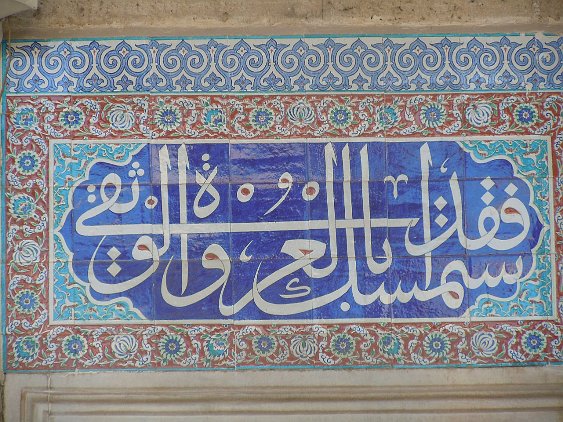 فقد استمسك بالعروة الوثقى